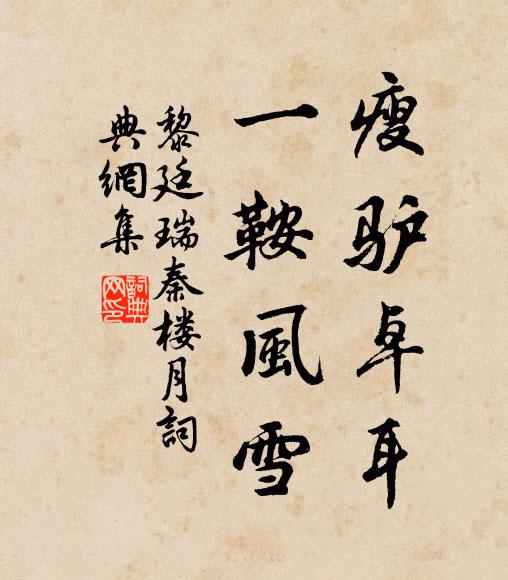 瘦驴卓耳
一鞍風雪
黎廷瑞秦楼月詞
典網集
詞典
网印